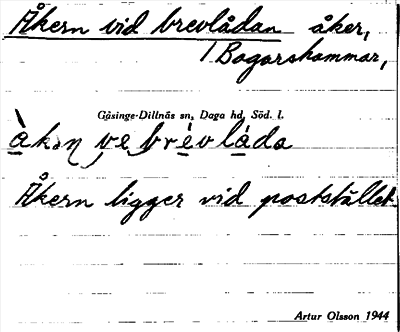 Åkern vid brevlådan åker,
Bogarshammar,
Gåsinge-Dillnäs sn, Daga hd, Söd. l.
Åkern ligger vid poststället.
Artur Olsson 1944